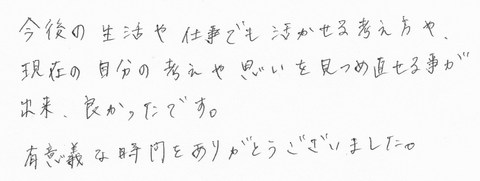 今後の生活や仕事でも活かせる考え方や、
現在の自分の考えや思いを見つめ直せる事が
出来、良かったです。
有意義な時間をありがとうございました。